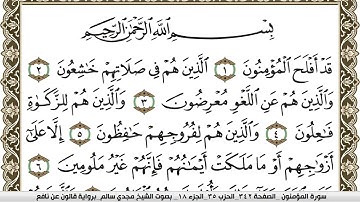 بِسْمِ اللَّهِ الرَّحْمَٰنِ الرَّحِيمِ
قَدْ أَفْلَحَ الْمُؤْمِنُونَ ١ الَّذِينَ هُمْ فِي صَلَاتِهِمْ خَٰشِعُونَ ٢
وَالَّذِينَ هُمْ عَنِ اللَّغْوِ مُعْرِضُونَ ٣ وَالَّذِينَ هُمْ لِلزَّكَوٰةِ
فَٰعِلُونَ ٤ وَالَّذِينَ هُمْ لِفُرُوجِهِمْ حَٰفِظُونَ ٥ إِلَّا عَلَىٰ
أَزْوَٰجِهِمْ أَوْ مَا مَلَكَتْ أَيْمَٰنُهُمْ فَإِنَّهُمْ غَيْرُ مَلُومِينَ ٦
سورة المؤمنون . الصفحة ٣٤٢ . الحزب ٣٥ . الجزء ١٨ . بصوت الشيخ مجدي سالم . برواية قالون عن نافع